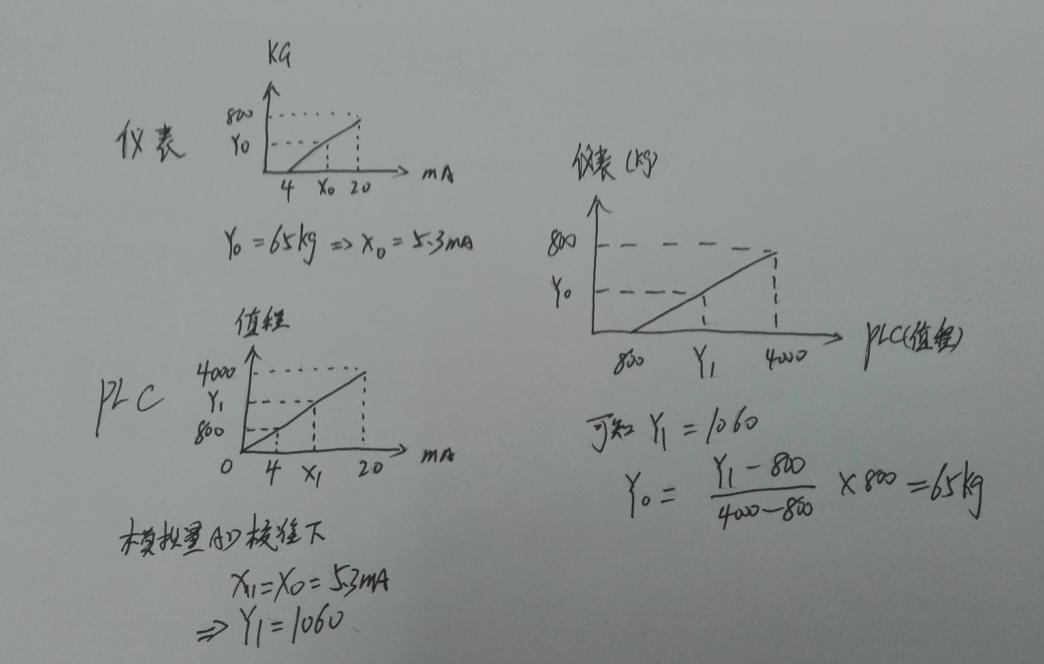 KG
仪表
800
Y0
4 X0 20 mA
Y0=65kg⇒X0=5.3mA
值程
PLC
4000
Y1
800
0 4 X1 20 mA
模拟量AD校准下
X1=X0=5.3mA
⇒Y1=1060
仪表(kg)
800
Y0
800 Y1 4000 PLC(值程)
可知 Y1=1060
Y0= Y1-800 / 4000-800 ×800=65kg